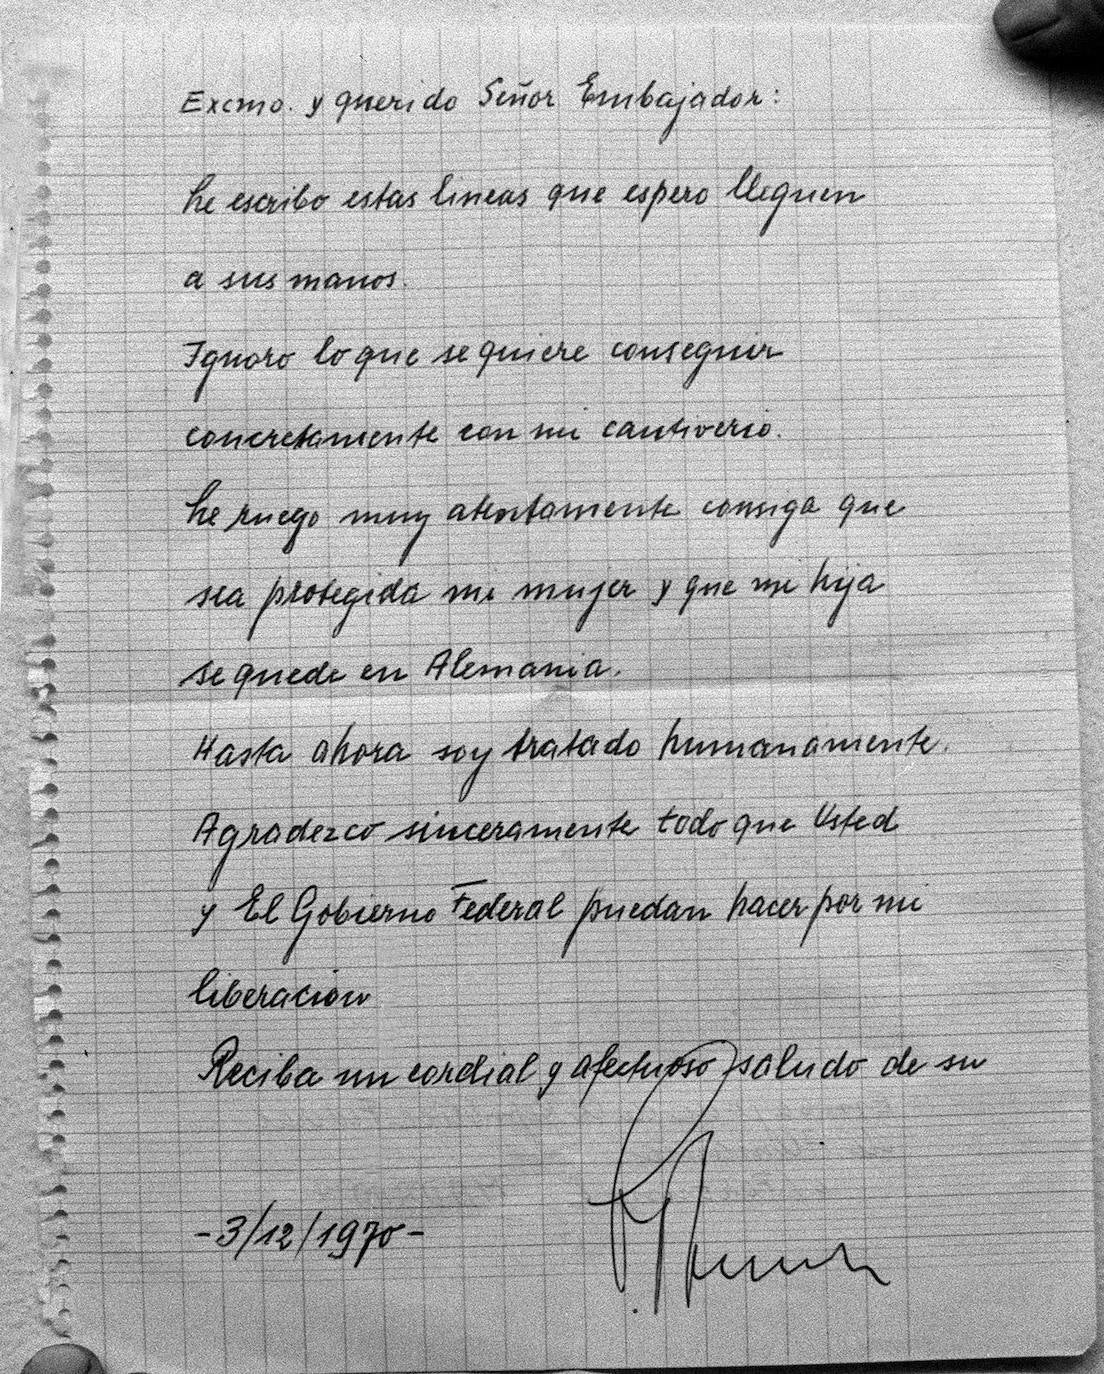 Excmo. y querido Señor Embajador:
Le escribo estas lineas que espero lleguen
a sus manos.
Ignoro lo que se quiere conseguir
concretamente con mi cautiverio.
Le ruego muy atentamente consiga que
sea protegida mi mujer y que mi hija
se quede en Alemania.
Hasta ahora soy tratado humanamente.
Agradezco sinceramente todo que Usted
y El Gobierno Federal puedan hacer por mi
liberación
Reciba un cordial y afectuoso saludo de su
-3/12/1970-